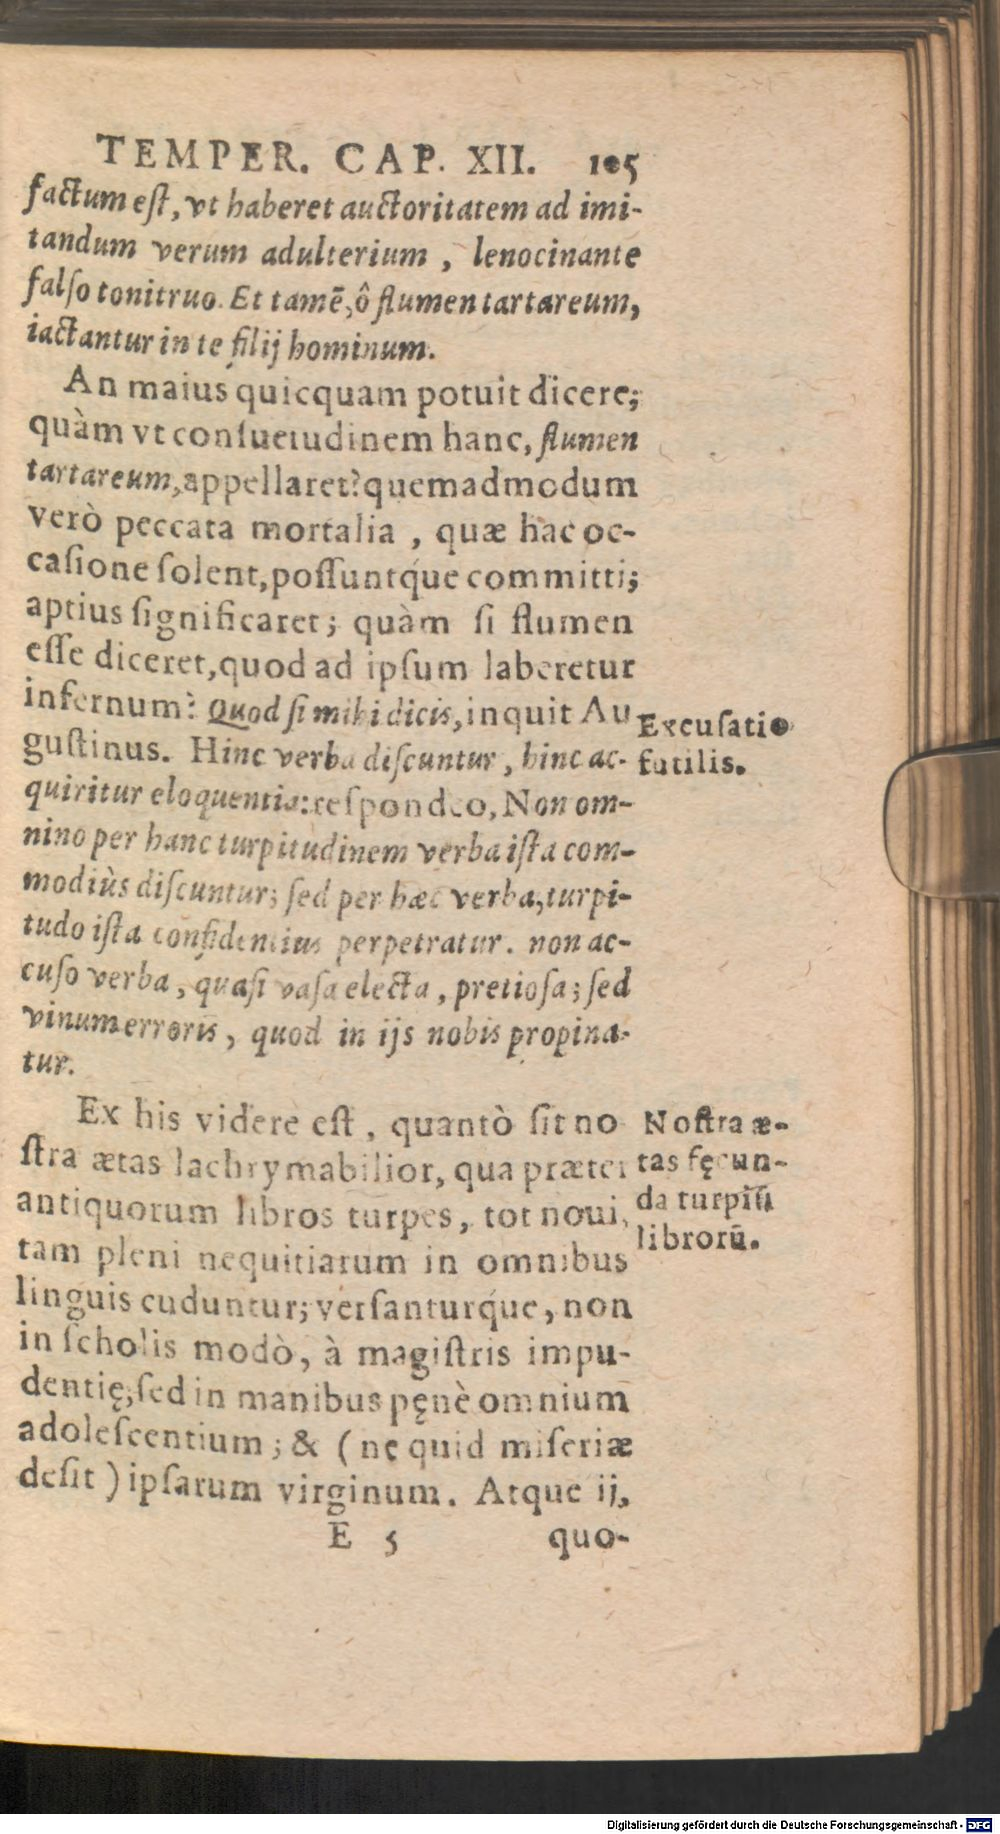 TEMPER. CAP. XII. 105
factum eſt, vt haberet auctoritatem ad imi-
tandum verum adulterium, lenocinante
falſo tonitruo. Et tamē, ô flumen tartareum,
iactantur in te filij hominum.
An maius quicquam potuit dicere;
quàm vt conſuetudinem hanc, flumen
tartareum, appellaret? quemadmodum
verò peccata mortalia, quæ hac oc-
caſione ſolent, poſſuntq́ue committi;
aptius ſignificaret; quàm ſi flumen
eſſe diceret, quod ad ipſum laberetur
infernum? Quod ſi mihi dicis, inquit Au
guſtinus. Hinc verba diſcuntur, hinc ac-
quiritur eloquentia: reſpondeo, Non om-
nino per hanc turpitudinem verba iſta com-
modiùs diſcuntur; ſed per hæc verba, turpi-
tudo iſta confidentius perpetratur. non ac-
cuſo verba, quaſi vaſa electa, pretioſa; ſed
vinum erroris, quod in ijs nobis propina-
tur.
Excuſatio
futilis.
Ex his videre eſt, quantò ſit no
ſtra ætas lachrymabilior, qua præter
antiquorum libros turpes, tot noui,
tam pleni nequitiarum in omnibus
linguis cuduntur; verſanturq́ue, non
in ſcholis modò, à magiſtris impu-
dentię, ſed in manibus pęnè omnium
adoleſcentium; & (ne quid miſeriæ
deſit) ipſarum virginum. Atque ij,
Noſtra æ-
tas fęcun-
da turpiū
librorū.
E 5 quo-
Digitalisierung gefördert durch die Deutsche Forschungsgemeinschaft - DFG